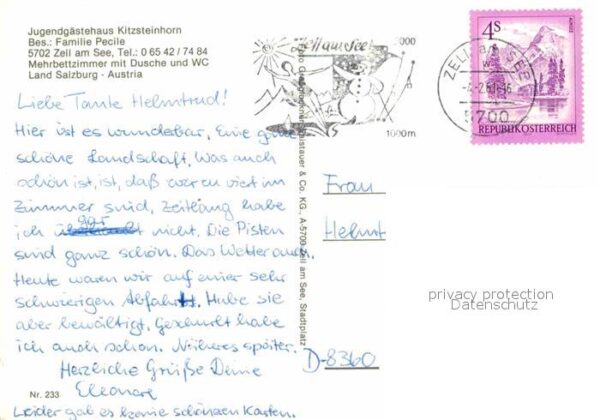 Jugendgästehaus Kitzsteinhorn
Bes.: Familie Pecile
5702 Zell am See, Tel.: 0 65 42 / 74 84
Mehrbettzimmer mit Dusche und WC
Land Salzburg - Austria
Liebe Tante Helmtrud!
Hier ist es wunderbar, Eine ganz
schöne Landschaft, Was auch
schön ist, ist, daß wir zu viert im
Zimmer sind, Zeitlang habe
ich gar nicht. Die Pisten
sind ganz schön. Das Wetter auch.
Heute waren wir auf einer sehr
schwierigen Abfahrt. Habe sie
aber bewältigt. Geschurlt habe
ich auch schon. Näheres später.
Herzliche Grüße Deine
Eleonore
Nr. 233
Leider gab es keine schönen Karten.
& Co. KG., A-5700 Zell am See, Stadtplatz
Zell am See
2000
1000m
ZELL a. SEE
5700
4S
REPUBLIK ÖSTERREICH
Frau
Helmt
D-8360
privacy protection
Datenschutz